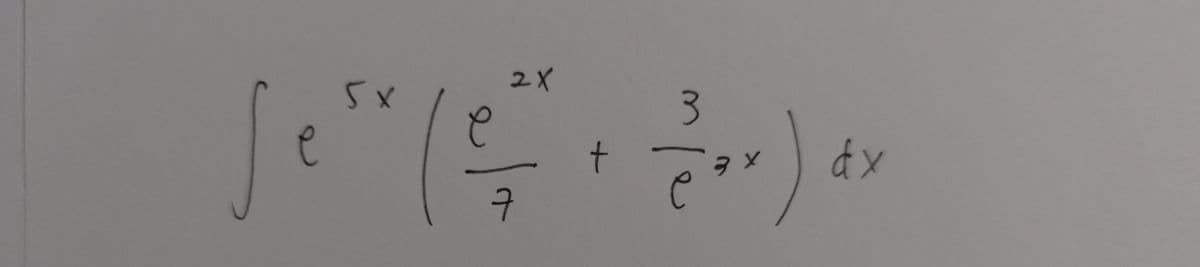 ∫ e^{5x} ( \frac{e^{2x}}{7} + \frac{3}{e^{3x}} ) dx